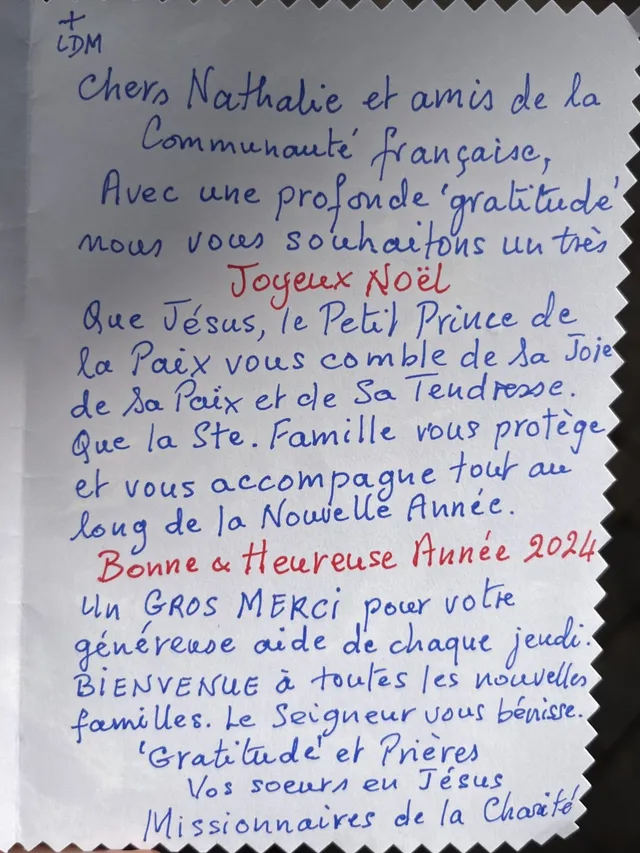 +
LDM
Chers Nathalie et amis de la
Communauté française,
Avec une profonde 'gratitude'
nous vous souhaitons un très
Joyeux Noël
Que Jésus, le Petit Prince de
la Paix vous comble de Sa Joie
de Sa Paix et de Sa Tendresse.
Que la Ste. Famille vous protège
et vous accompagne tout au
long de la Nouvelle Année.
Bonne & Heureuse Année 2024
Un GROS MERCi pour votre
généreuse aide de chaque jeudi.
BiENVENUE à toutes les nouvelles
familles. Le Seigneur vous bénisse.
'Gratitude' et Prières
Vos soeurs en Jésus
Missionnaires de la Charité